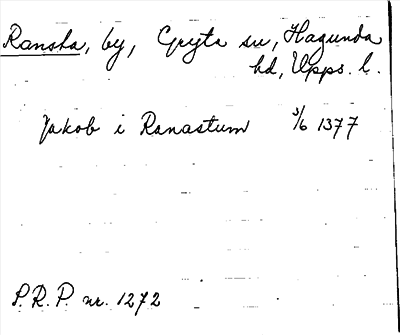 Ransta, by, Gryta sn, Hagunda
hd, Upps. l.
Jakob i Ranastum 3/6 1377
P.R.P. nr. 1272